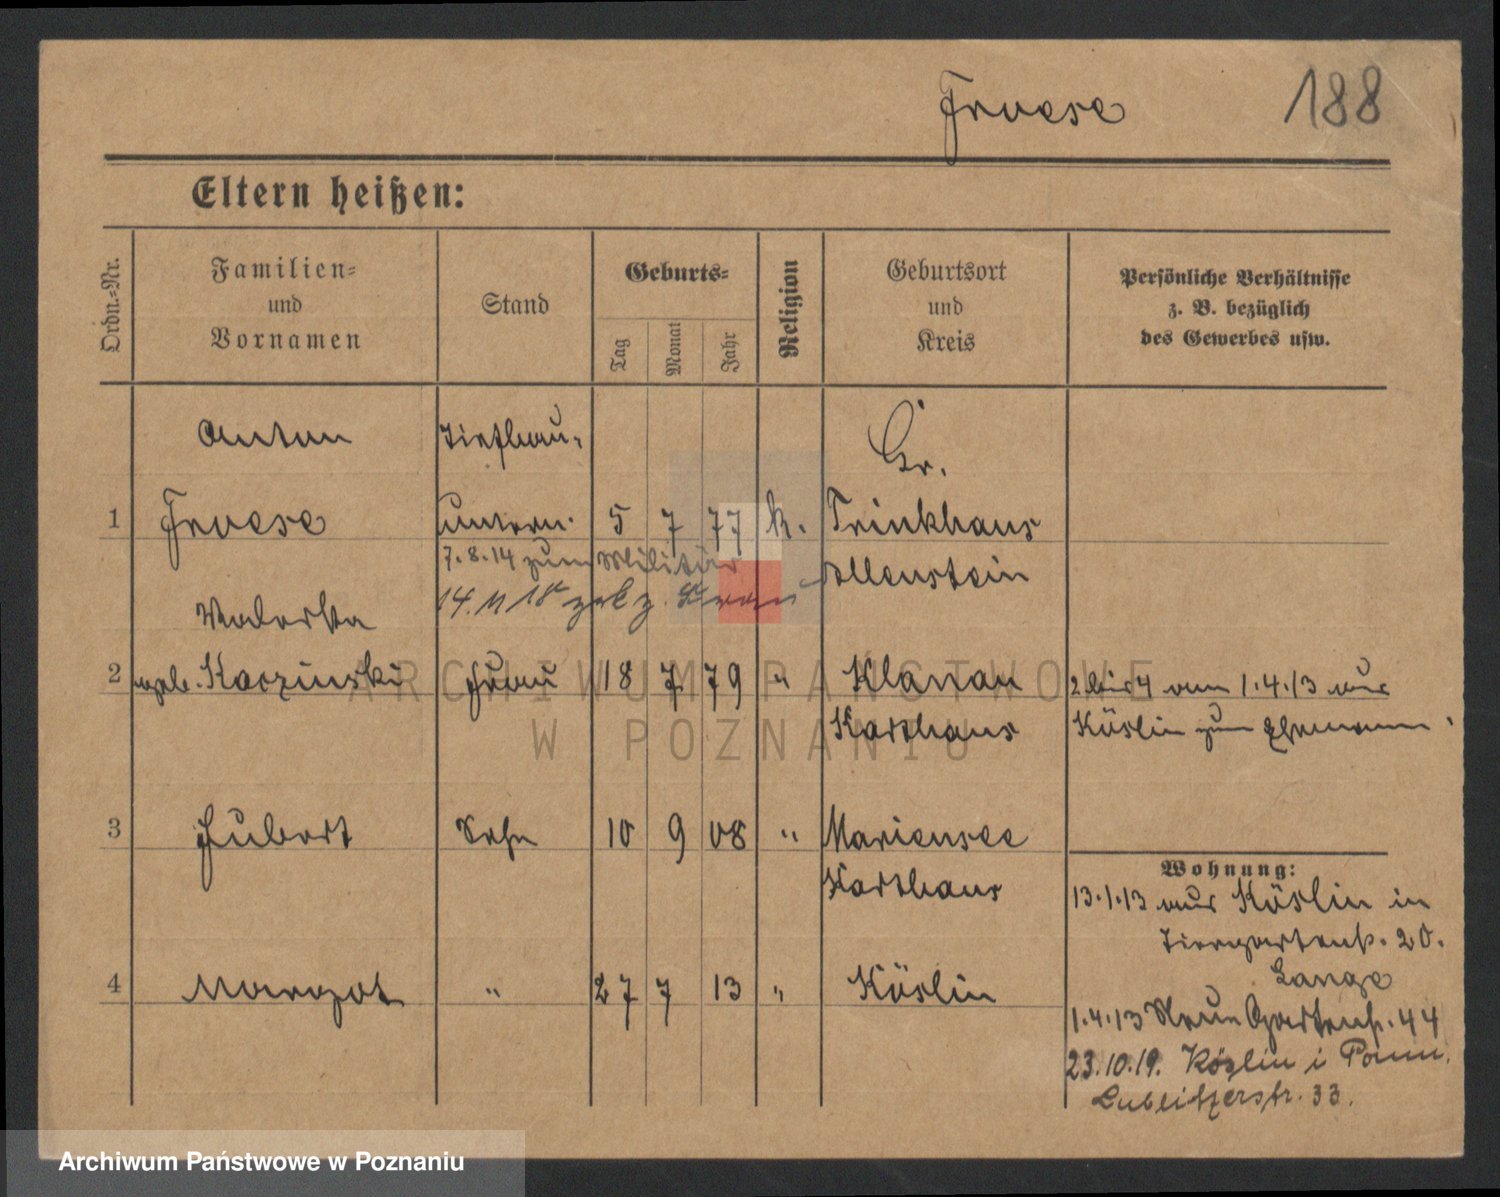 Froese 188
Eltern heißen:
Ordn.=Nr.
Familien=
und
Vornamen
Stand
Geburts=
Tag
Monat
Jahr
Religion
Geburtsort
und
Kreis
Persönliche Verhältnisse
z. B. bezüglich
des Gewerbes usw.
Anton Tiefbau- Gr.
1 Froese untern. 5 7 77 k. Trinkhaus
7.8.14 zum Militär Allenstein
14. 11 18 zrk z. Frau
Valeska
2 geb. Kaczinski Frau 18 7 79 " Klanau 2 bis 4 vom 1.4.13 aus
Karthaus Köslin zum Ehemann.
3 Hubert Sohn 10 9 08 " Mariensee
Karthaus
4 Margot " 27 7 13 " Köslin
Wohnung:
13.1.13 aus Köslin in
Tiergartenstr. 20.
Lange
1.4.13 Neue Gartenstr. 44
23.10.19. Köslin i Pomm.
Lublitzerstr. 33.
ARCHIWUM PAŃSTWOWE
W POZNANIU
Archiwum Państwowe w Poznaniu